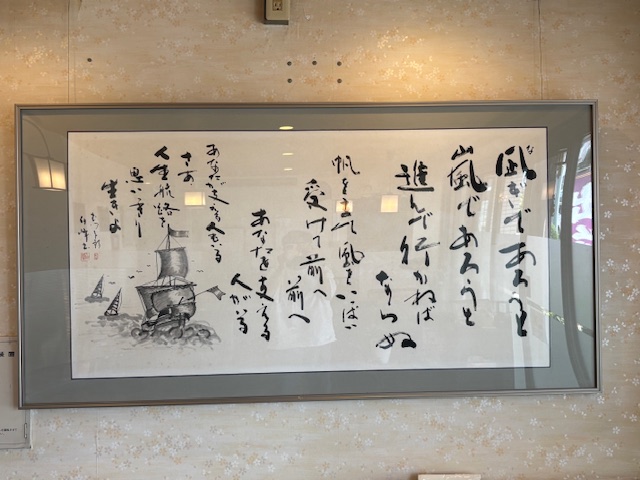 凪ぎであろうと
嵐であろうと
進んで行かねば
ならぬ
帆を立て風をいっぱい
受けて前へ
前へ
あなたを支える
人がいる
あなたが支える人もいる
さあ
人生航路を
思いきり
生きよ